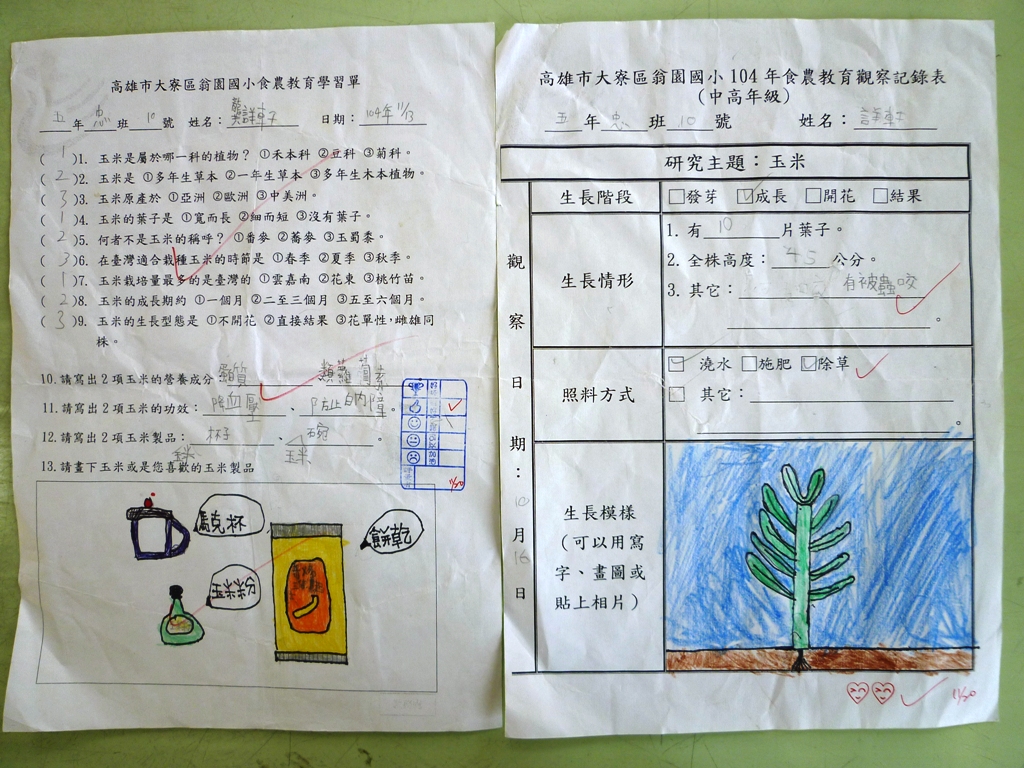 高雄市大寮區翁園國小食農教育學習單
五年忠班10號 姓名： 日期：104年11/13
(1)1. 玉米是屬於哪一科的植物？ ①禾本科 ②豆科 ③菊科。
(2)2. 玉米是 ①多年生草本 ②一年生草本 ③多年生木本植物。
(3)3. 玉米原產於 ①亞洲 ②歐洲 ③中美洲。
(1)4. 玉米的葉子是 ①寬而長 ②細而短 ③沒有葉子。
(2)5. 何者不是玉米的稱呼？ ①番麥 ②蕎麥 ③玉蜀黍。
(3)6. 在臺灣適合栽種玉米的時節是 ①春季 ②夏季 ③秋季。
(1)7. 玉米栽培量最多的是臺灣的 ①雲嘉南 ②花東 ③桃竹苗。
(2)8. 玉米的成長期約 ①一個月 ②二至三個月 ③五至六個月。
(3)9. 玉米的生長型態是 ①不開花 ②直接結果 ③花單性，雌雄同
株。
10.請寫出2項玉米的營養成分
11.請寫出2項玉米的功效：降血壓、防止白內障。
12.請寫出2項玉米製品：杯子、碗。
玉米 玉米
13.請畫下玉米或是您喜歡的玉米製品
馬克杯
餅乾
玉米粉
11/20
高雄市大寮區翁園國小104年食農教育觀察記錄表
（中高年級）
五年忠班10號 姓名：
研究主題：玉米
觀察日期：10月16日
生長階段 □發芽 ☑成長 □開花 □結果
生長情形
1. 有10片葉子。
2. 全株高度：45公分。
3. 其它：有被蟲咬
。
照料方式
☑澆水 □施肥 ☑除草
□其它：
。
生長模樣
（可以用寫
字、畫圖或
貼上相片）
11/20